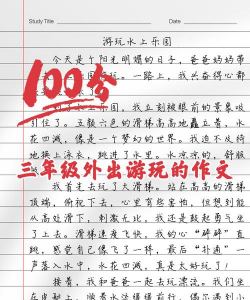 Study Title
Date
游玩水上乐园
今天是个阳光明媚的日子，爸爸妈妈带
一路上，我兴奋得心都
100分
乐园，我立刻被眼前的景象吸
引住了。五颜六色的滑梯高高地矗立着，水
花四溅，像是一个梦幻的世界。我迫不及待
地换上泳衣，跳进了水里。水凉凉的，舒服
三年级外出游玩的作文
我首先去玩了大滑梯。站在高高的滑梯
顶端，俯视下去，心里有些害怕，但想到能
从高处滑下，刺激无比，我还是鼓起勇气坐
了上去。滑梯速度飞快，我的心“砰砰”直
跳，感觉自己像飞了一样，最后“扑通”一
声落入水中，水花四溅，真是太好玩了！
接着，我和爸爸一起去玩漂流。我们坐